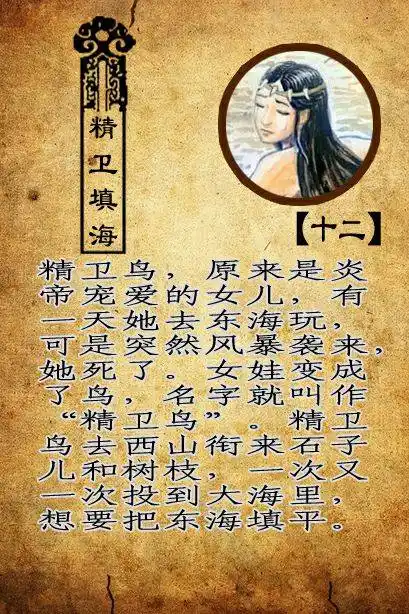 精卫填海
【十二】
精卫鸟，原来是炎
帝宠爱的女儿，有
一天她去东海玩，
可是突然风暴袭来，
她死了。女娃变成
了鸟，名字就叫作
“精卫鸟”。精卫
鸟去西山衔来石子
儿和树枝，一次又
一次投到大海里，
想要把东海填平。